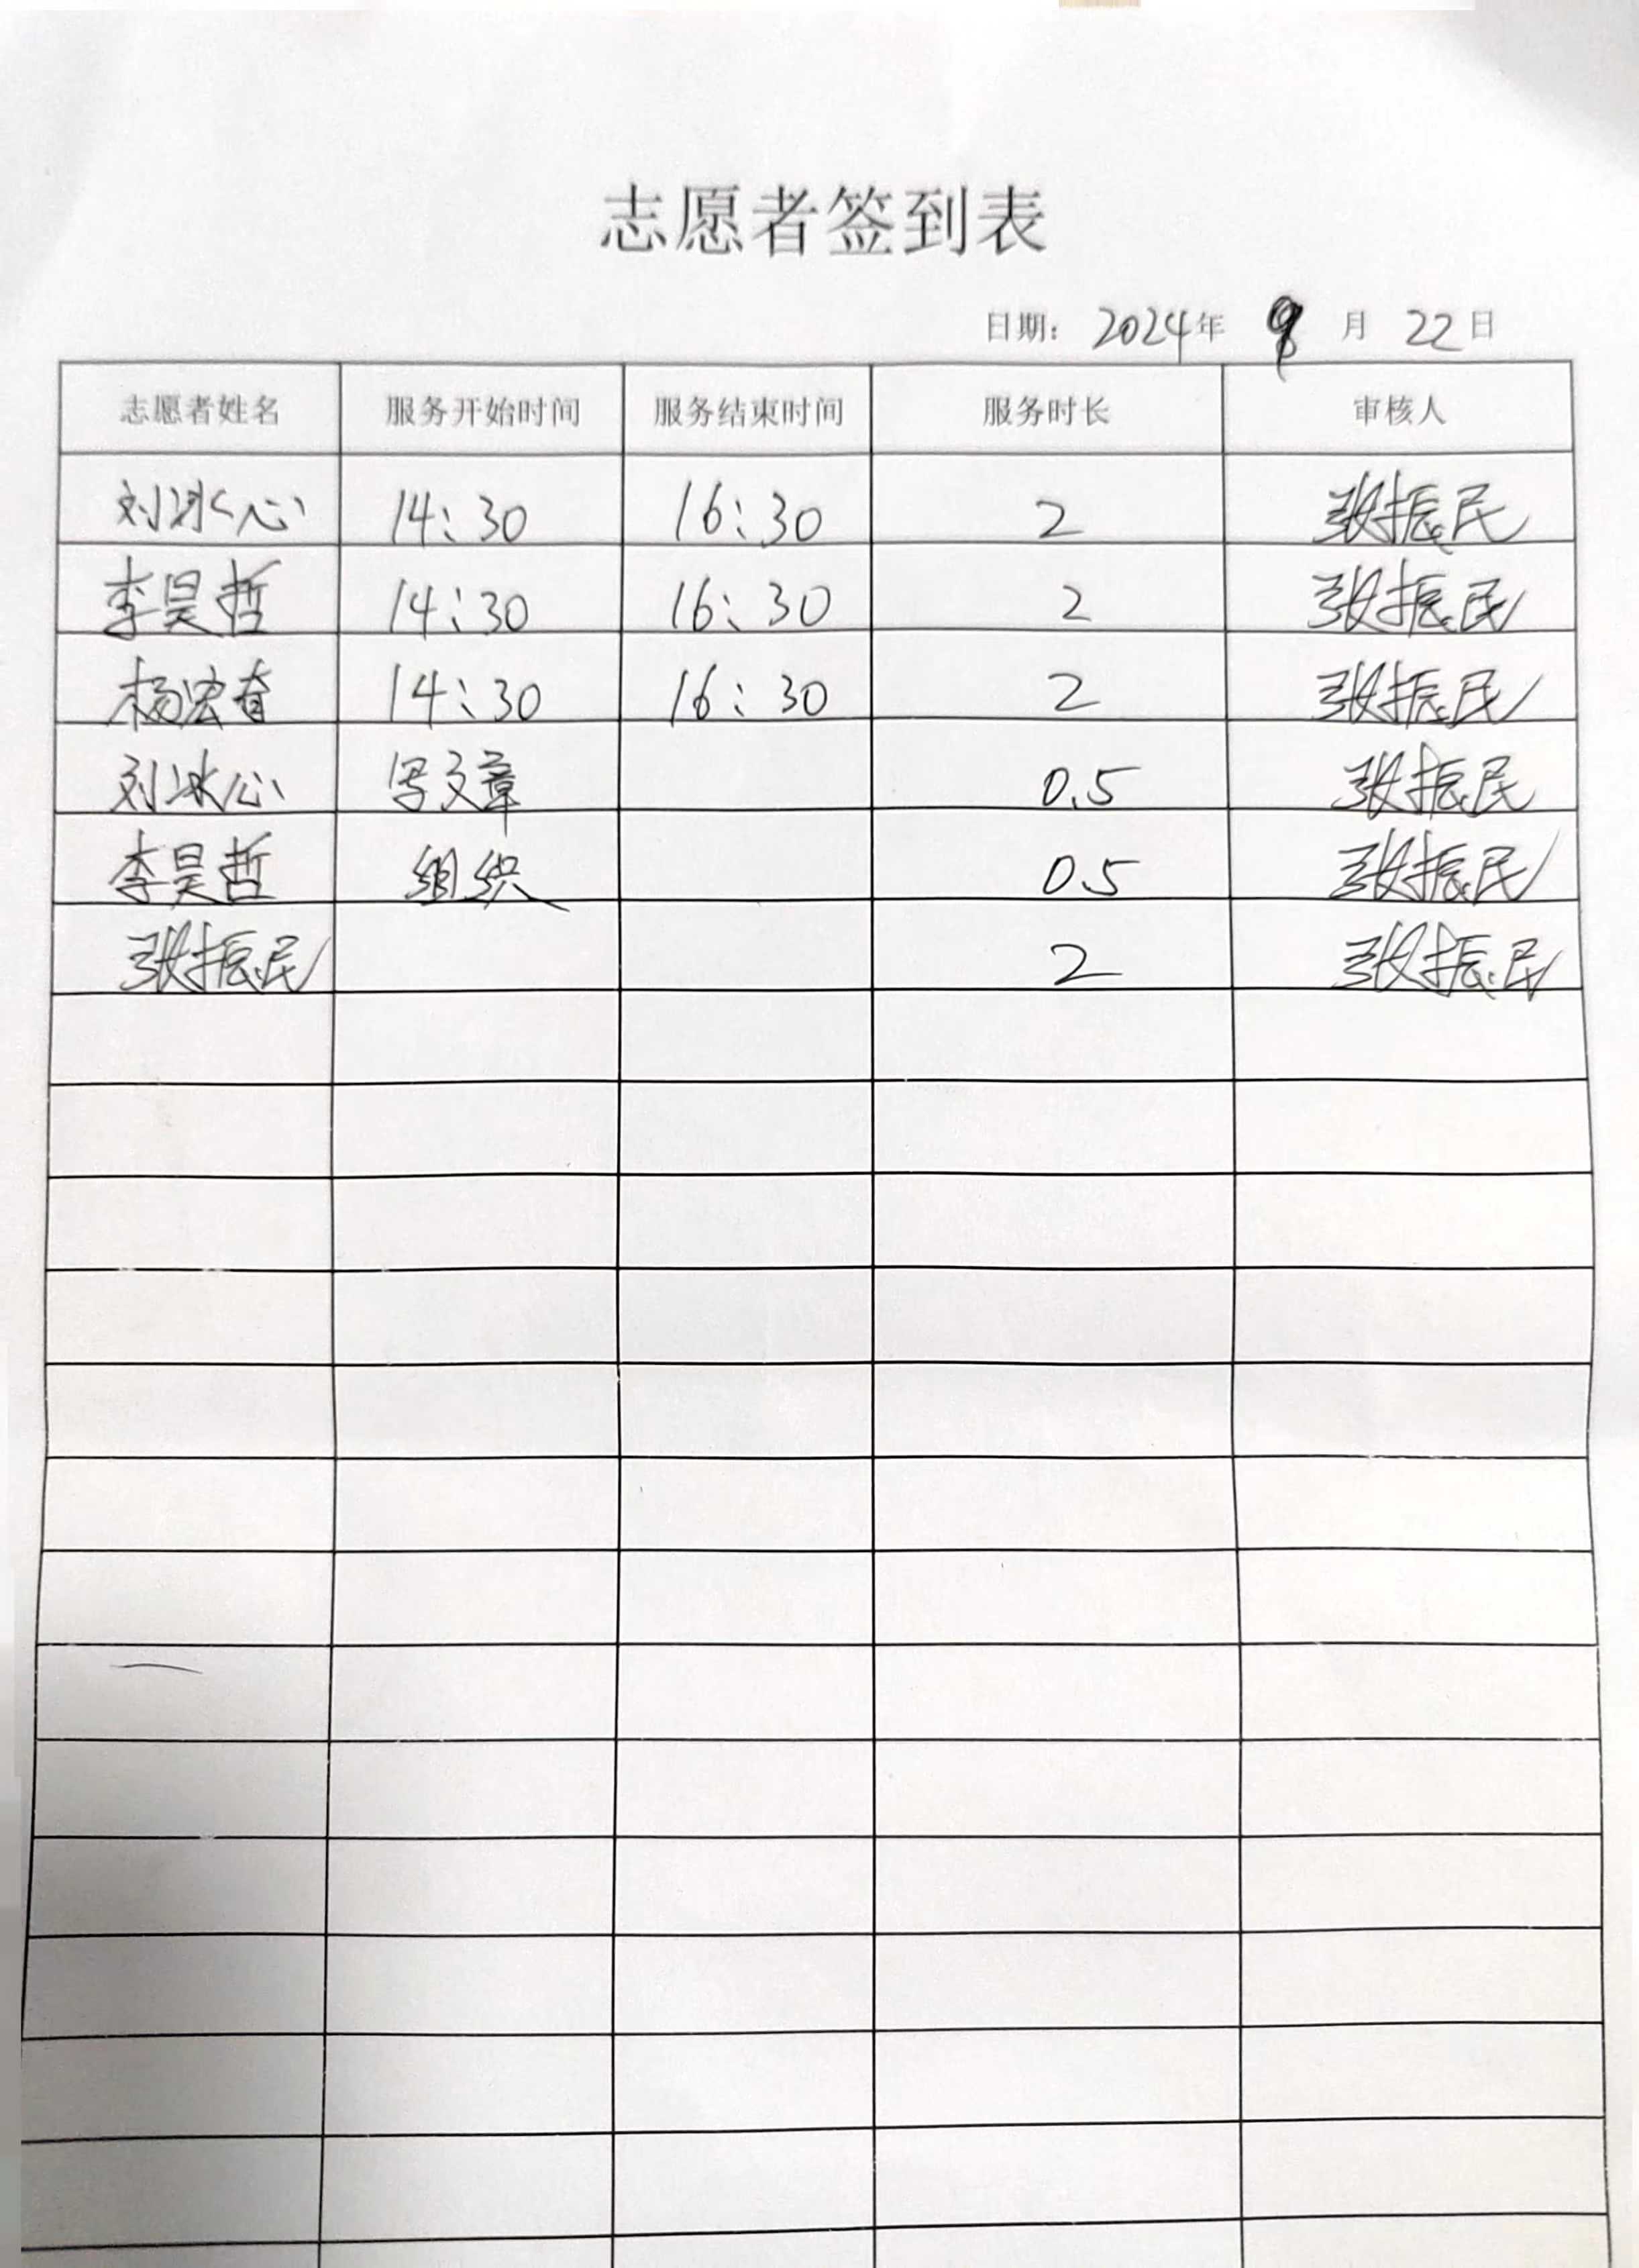 志愿者签到表
日期: 2024年 9 月 22日
志愿者姓名 服务开始时间 服务结束时间 服务时长 审核人
刘冰心 14:30 16:30 2 张振民
李昊哲 14:30 16:30 2 张振民
杨宏奋 14:30 16:30 2 张振民
刘冰心 写文章 0.5 张振民
李昊哲 组织 0.5 张振民
张振民 2 张振民